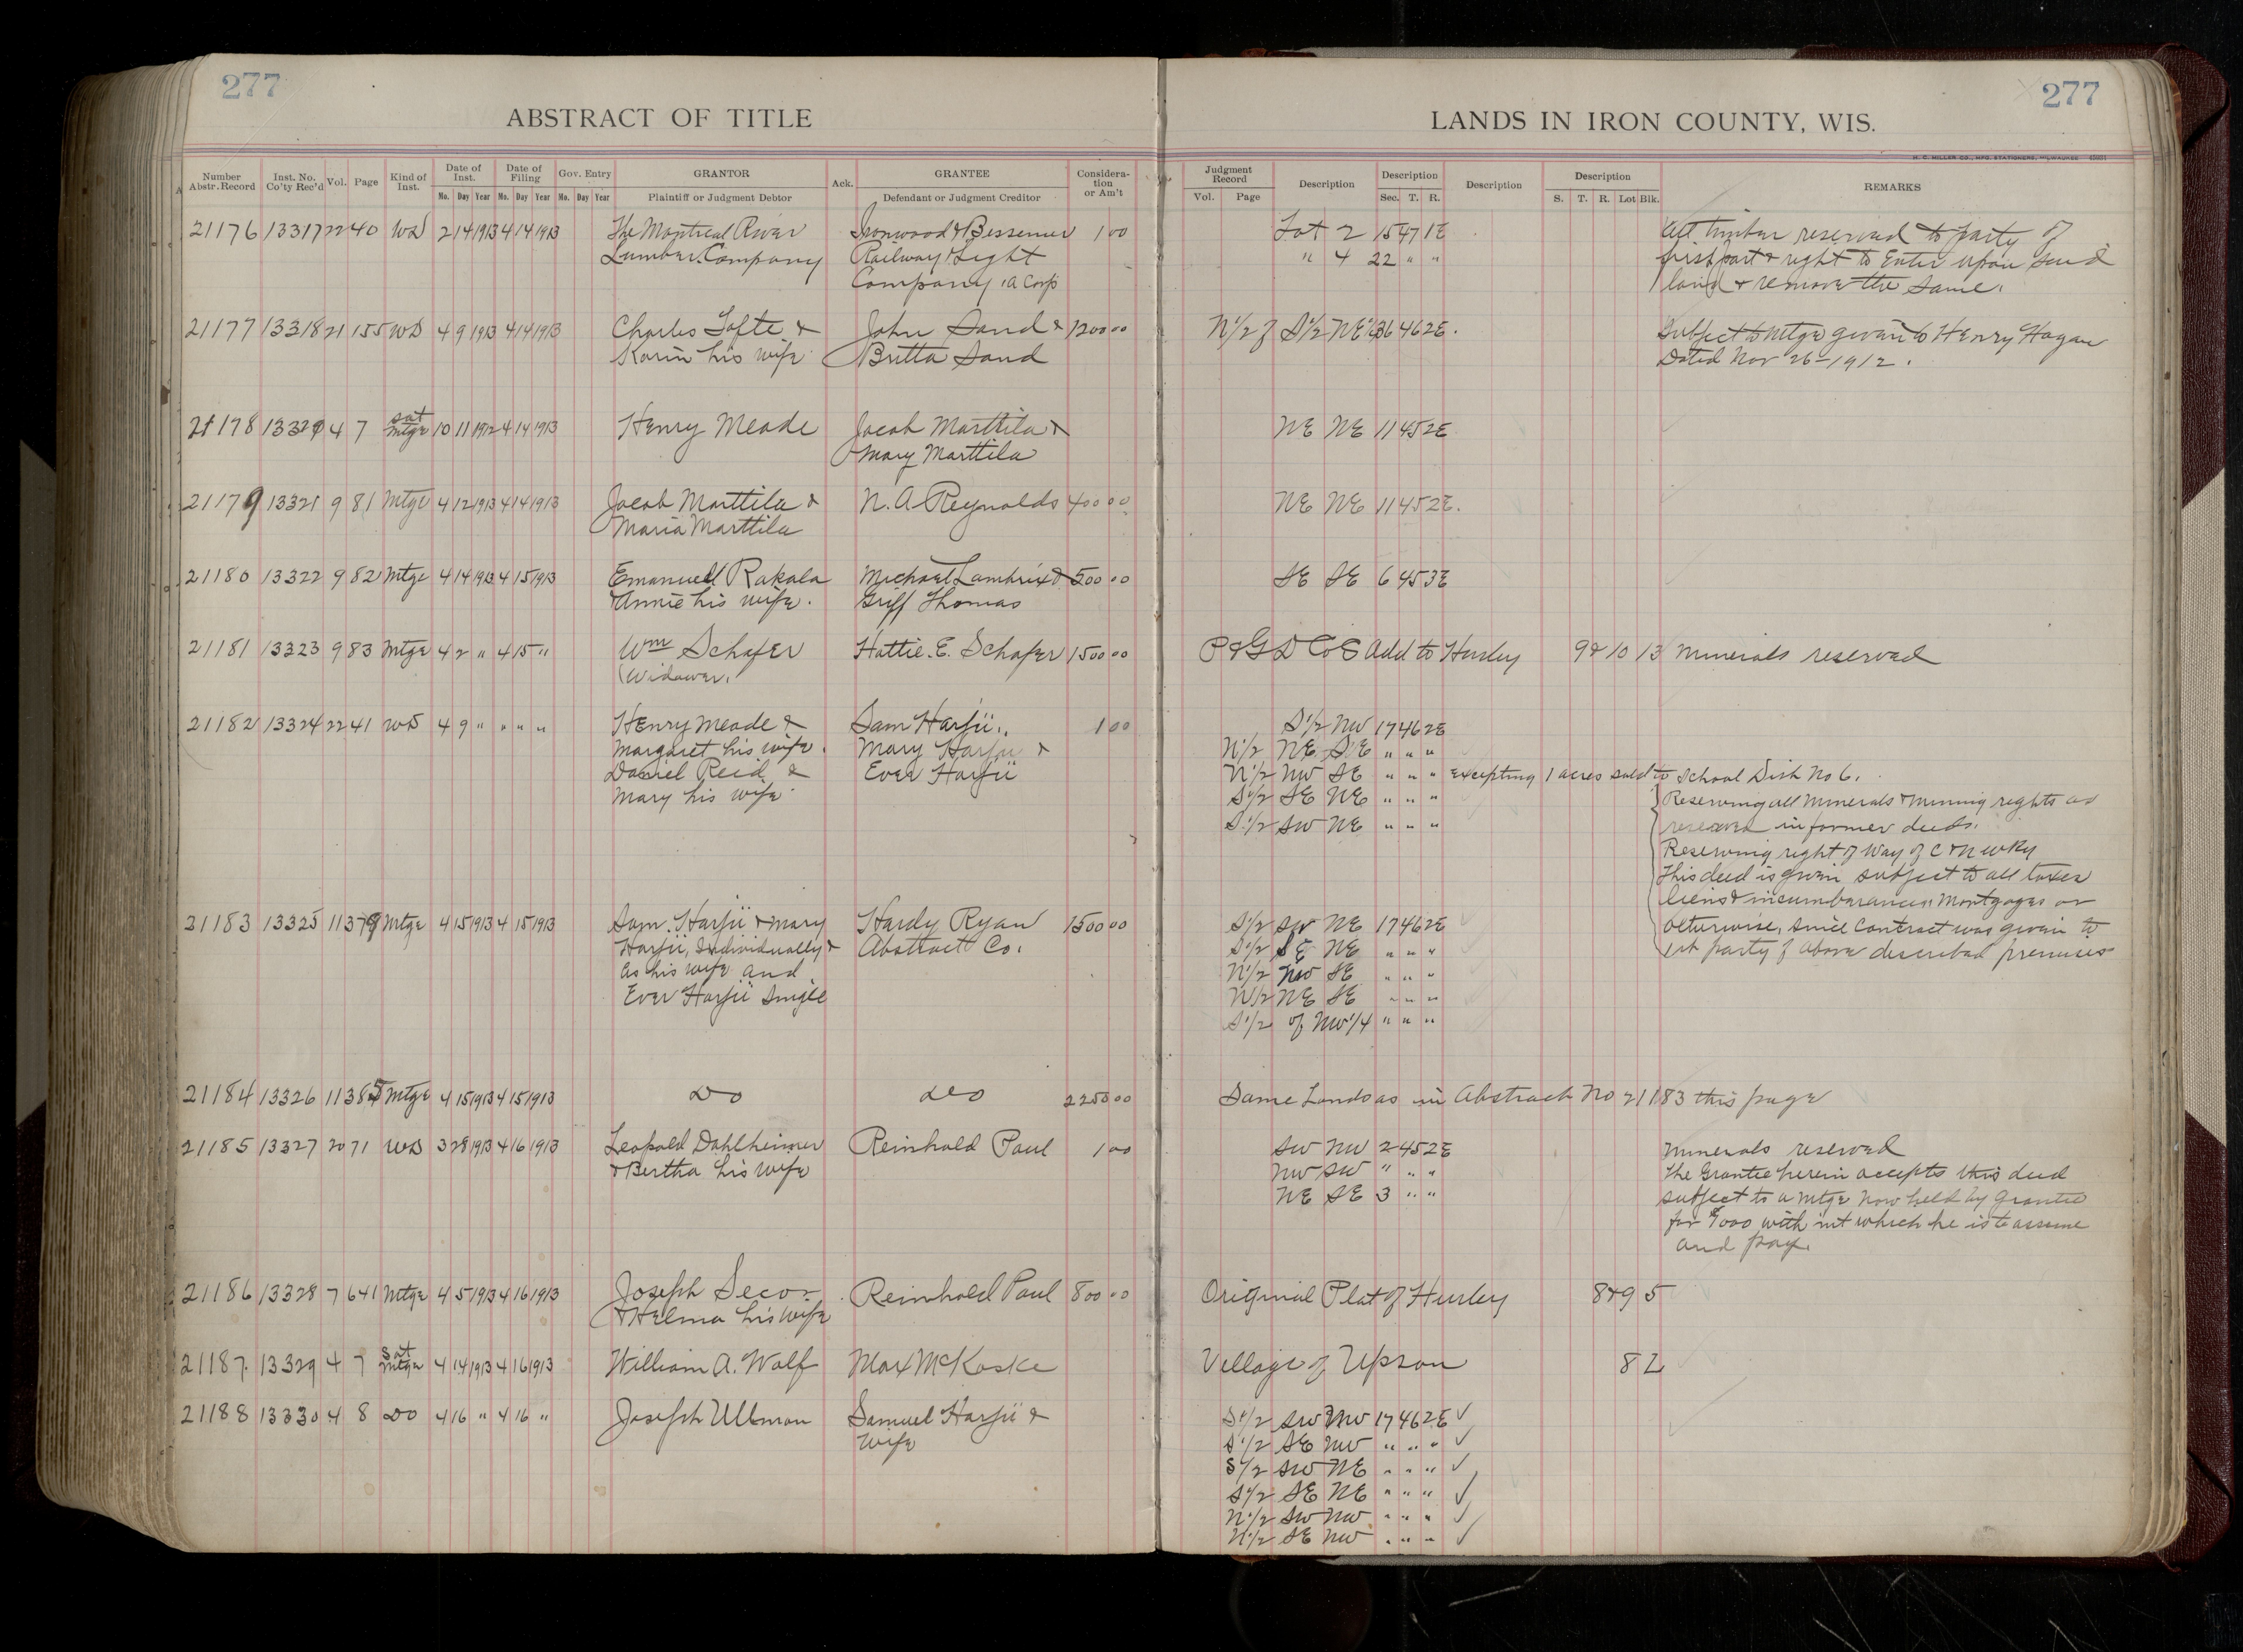 277
277
ABSTRACT OF TITLE
LANDS IN IRON COUNTY, WIS.
H. C. MILLER CO., MFG. STATIONERS, MILWAUKEE
Number Abstr. Record | Inst. No. Co'ty Rec'd | Vol. | Page | Kind of Inst. | Date of Inst. Mo. Day Year | Date of Filing Mo. Day Year | Gov. Entry Mo. Day Year | GRANTOR Plaintiff or Judgment Debtor | Ack. | GRANTEE Defendant or Judgment Creditor | Consideration or Am't | Judgment Record Vol. Page | Description | Description Sec. T. R. | Description | Description S. T. R. Lot Blk. | REMARKS
21176 13317 22 40 WD 2 14 1913 4 14 1913 The Montreal River Ironwood & Bessemer 1 00 Lot 2 15 47 1E All timber reserved to party of
Lumber Company Railway & Light " 4 22 " " first part & right to Enter upon said
Company, a Corp land & remove the same.
21177 13318 21 155 WD 4 9 1913 4 14 1913 Charles Tofte & John Sand & 1200 00 N 1/2 of S 1/2 NE 1/4 36 46 2E. Subject to Mtge given to Henry Hagan
Karin his wife Britta Sand Dated Nov 26-1912.
21178 4 7 Sat Mtge 10 11 1912 4 14 1913 Henry Meade Jacob Marttila & NE NE 11 45 2E
Mary Marttila
21179 13321 9 81 Mtge 4 12 1913 4 14 1913 Jacob Marttila & N. A. Reynolds 400 00 NE NE 11 45 2E.
Maria Marttila
21180 13322 9 82 Mtge 4 14 1913 4 15 1913 Emanuel Rakala Michael Lambrix & 500 00 SE SE 6 45 3E
& Annie his wife. Griff Thomas
21181 13323 9 83 Mtge 4 2 " 4 15 " Wm Schafer Hattie E. Schafer 1500 00 Add to Hurley 9 & 10 13 Minerals reserved
Widower.
21182 13324 22 41 WD 4 9 " " " " Henry Meade & Sam Harju, 1 00 S 1/2 NW 17 46 2E
Margaret his wife. Mary Harju & N 1/2 NE SE " " "
Daniel Reid & Ever Harju N 1/2 NW SE " " " excepting 1 acres sold to School Dist No 6.
Mary his wife S 1/2 SE NE " " " Reserving all minerals & mining rights as
S 1/2 SW NE " " " reserved in former deeds.
Reserving right of way of C & N W Ry
This deed is given subject to all taxes
liens & incumbarances, Mortgages or
21183 13325 11 Mtge 4 15 1913 4 15 1913 Sam. Harju & Mary Hardy Ryan 1500 00 S 1/2 SW NE 17 46 2E otherwise, since Contract was given to
Harju, Individually & Abstract Co. S 1/2 SE NE " " " 1st party of above described premises
as his wife and N 1/2 NW SE " " "
Ever Harju single N 1/2 NE SE " " "
S 1/2 of NW 1/4 " " "
21184 13326 11 Mtge 4 15 1913 4 15 1913 Do Do 2250 00 Same Lands as in Abstract No 21183 this page
21185 13327 20 71 WD 3 28 1913 4 16 1913 Leopold Dahlheimer Reinhold Paul 1 00 SW NW 2 45 2E Minerals reserved
& Bertha his wife NW SW " " " The Grantee herein accepts this deed
NE SE 3 " " subject to a Mtge now held by grantee
for with int which he is to assume
and pay.
21186 13328 7 641 Mtge 4 5 1913 4 16 1913 Joseph Secor Reinhold Paul 800 00 Original Plat of Hurley 8 & 9 5
& Helma his wife
21187. 13329 4 7 Sat Mtge 4 14 1913 4 16 1913 William A. Wolf Max McKoske Village of Upson 8 2
21188 13330 4 8 Do 4 16 " 4 16 " Joseph Ullman Samuel Harju & S 1/2 SW NW 17 46 2E ✓
Wife S 1/2 SE NW " " " ✓
S 1/2 SW NE " " " ✓
S 1/2 SE NE " " " ✓
N 1/2 SW NW " " " ✓
N 1/2 SE NW " " " ✓